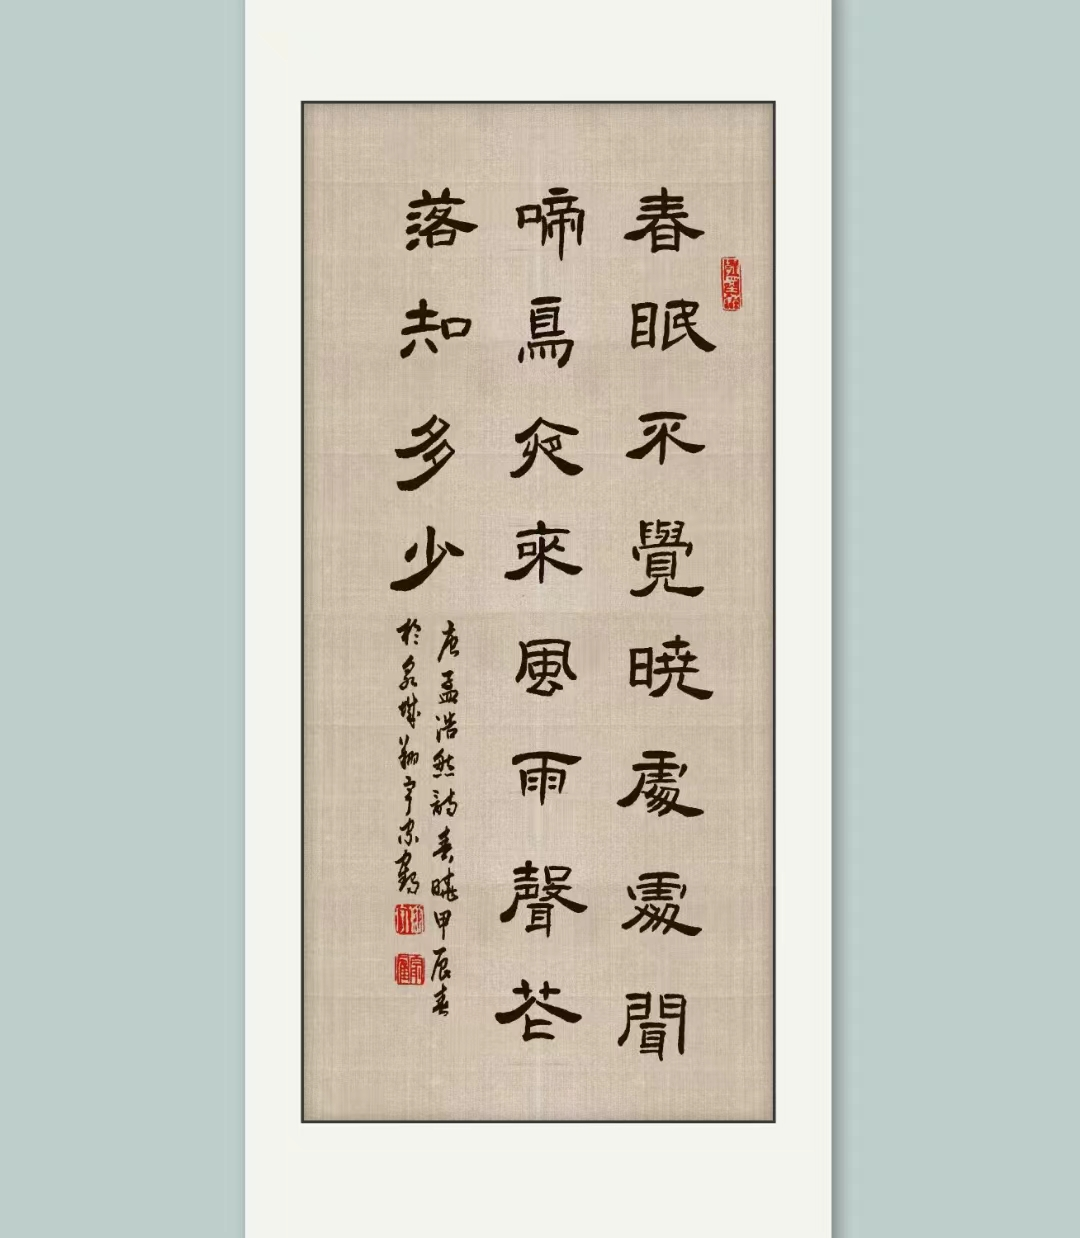 春眠不覺曉處處聞
啼鳥夜來風雨聲花
落知多少
唐孟浩然詩春曉甲辰春
於泉城翔宇宗鶴